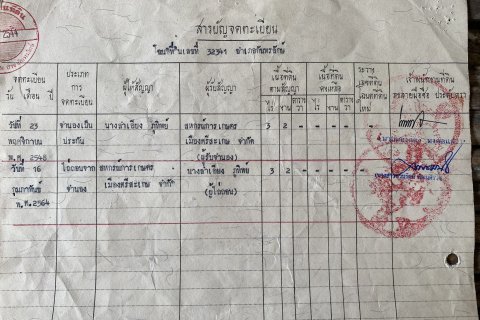 สารบัญจดทะเบียน
โฉนดที่ดินเลขที่ 32341 อำเภอกันทรลักษ์
จดทะเบียน วัน เดือน ปี
ประเภทการจดทะเบียน
ผู้ให้สัญญา
ผู้รับสัญญา
เนื้อที่ดินตามสัญญา
ไร่ งาน ตารางวา
เนื้อที่ดินคงเหลือ
ไร่ งาน ตารางวา
ระวาง เลขที่ดิน
ใหม่
เจ้าพนักงานที่ดิน
ลงลายมือชื่อ ประทับตรา
วันที่ 23 จำนองเป็น นางอำเอียง ภูทิพย์ สหกรณ์การเกษตร 3 2 - - - -
พฤศจิกายน ประกัน เมืองศรีสะเกษ จำกัด
พ.ศ. 2548 (ผู้รับจำนอง)
วันที่ 16 ไถ่ถอนจาก สหกรณ์การเกษตร นางอำเอียง ภูทิพย์ 3 2 - - - -
กุมภาพันธ์ จำนอง เมืองศรีสะเกษ จำกัด
พ.ศ. 2564 (ผู้ไถ่ถอน)